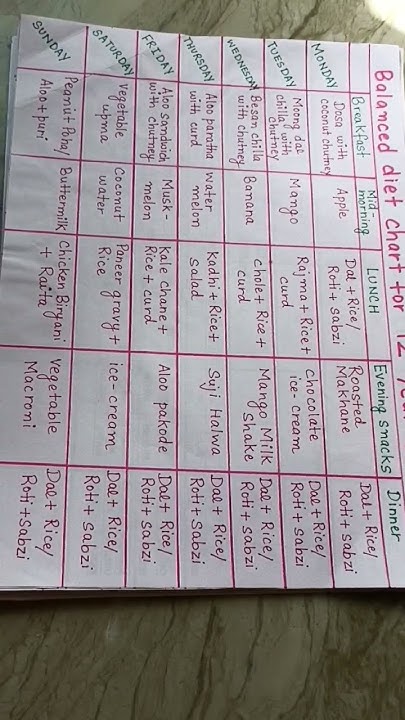 Balanced diet chart for 12
Breakfast Mid-morning LUNCH Evening smacks Dinner
MONDAY
Dosa with
coconut chutney
Apple
Dal + Rice/
Roti + sabzi
Roasted
Makhane
Dal + Rice/
Roti + sabzi
TUESDAY
Moong dal
chilla with
chutney
Mango
Rajma + Rice +
curd
Chocolate
ice-cream
Dal + Rice/
Roti + sabzi
WEDNESDAY
Besan chilla
with chutney
Banana
Chole + Rice +
curd
Mango Milk
Shake
Dal + Rice/
Roti + Sabzi
THURSDAY
Aloo parotha
with curd
Water
melon
Kadhi + Rice +
salad
Suji Halwa
Dal + Rice/
Roti + sabzi
FRIDAY
Aloo sandwich
with chutney
Musk-
melon
Kale chane +
Rice + curd
Aloo pakode
Dal + Rice/
Roti + Sabzi
SATURDAY
Vegetable
upma
Coconut
water
Paneer gravy +
Rice
ice-cream
Dal + Rice/
Roti + sabzi
SUNDAY
Peanut Poha/
Aloo + puri
Buttermilk
Chicken Biryani
+ Raita
Vegetable
Macroni
Dal + Rice/
Roti + Sabzi